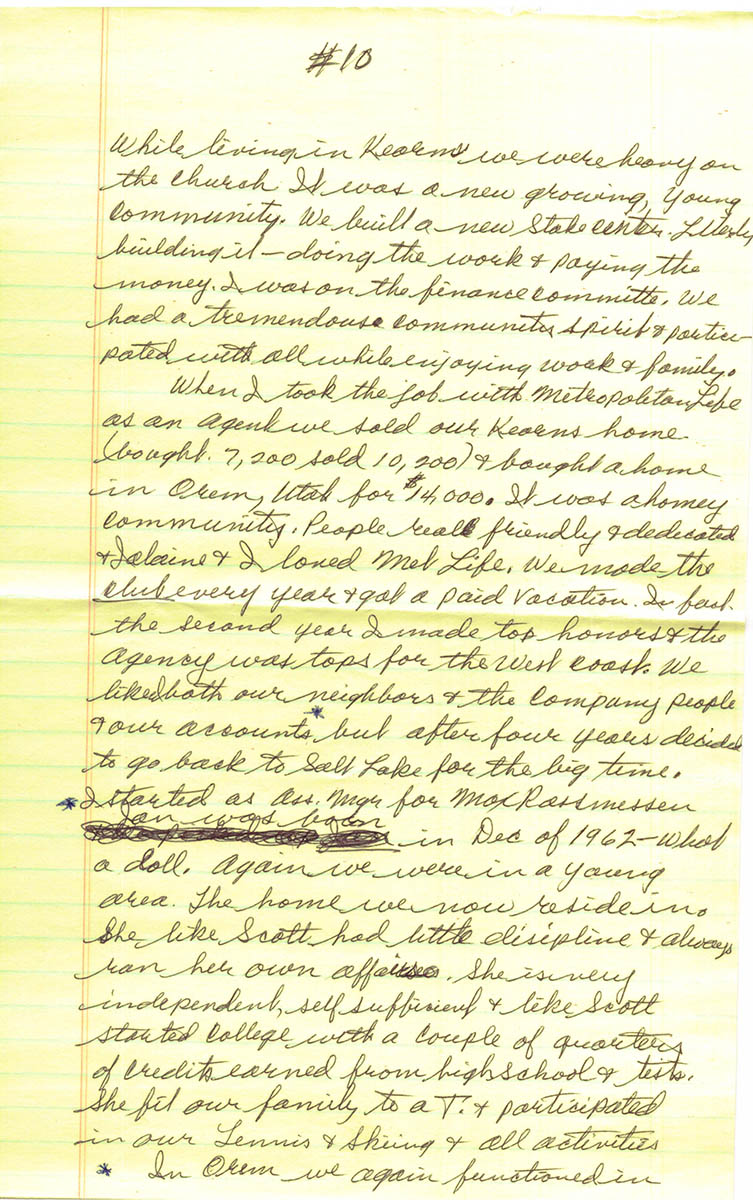 #10
While living in Kearns we were heavy on
the church It was a new growing, young
community. We built a new Stake center. Literly
building it - doing the work & paying the
money. I was on the finance committe. We
had a tremendouse community spirit & partici-
pated with all while enjoying work & family.
When I took the job with Metropolitan Life
as an agent we sold our Kearns home
(bought 7,200 sold 10,200) & bought a home
in Orem, Utah for $14,000. It was a homey
community. People real friendly & dedicated
& Jalaine & I loved Met Life. We made the
club every year & got a paid vacation. In fact
the second year I made top honors & the
agency was tops for the West Coast. We
liked both our neighbors & the company people
& our accounts * but after four years decided
to go back to Salt Lake for the big time.
* I started as Ass. Mgr for Max Rassmessen
Jan was born in Dec of 1962 - What
a doll. Again we were in a young
area. The home we now reside in.
She like Scott had little discipline & always
ran her own affairs. She is very
independent, self sufficient & like Scott
started college with a couple of quarters
of credits earned from high school & tests.
She fit our family to a T. & participated
in our Tennis & Skiing & all activities
* In Orem we again functioned in